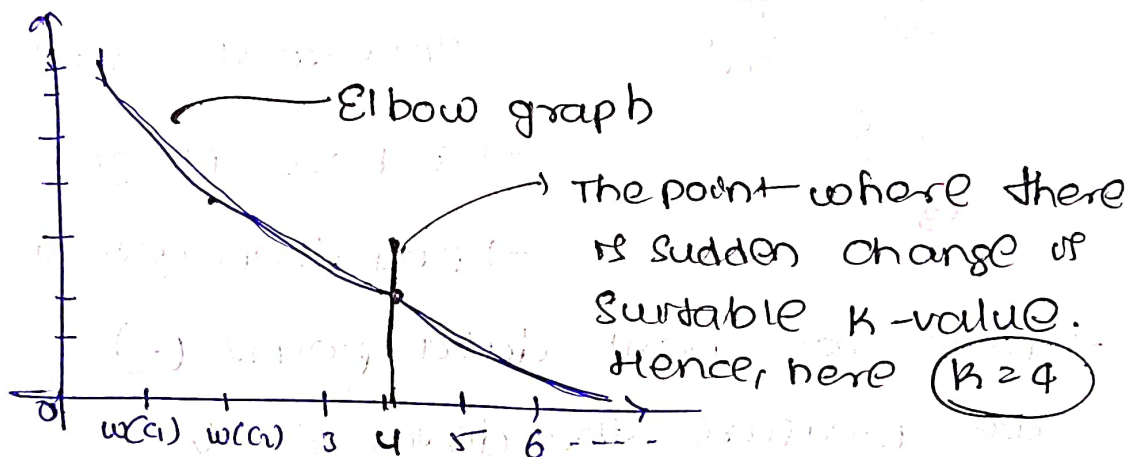 Elbow graph
→ The point where there
is sudden change is
suitable K-value.
Hence, here K=4
0 w(C1) w(C2) 3 4 5 6 -----